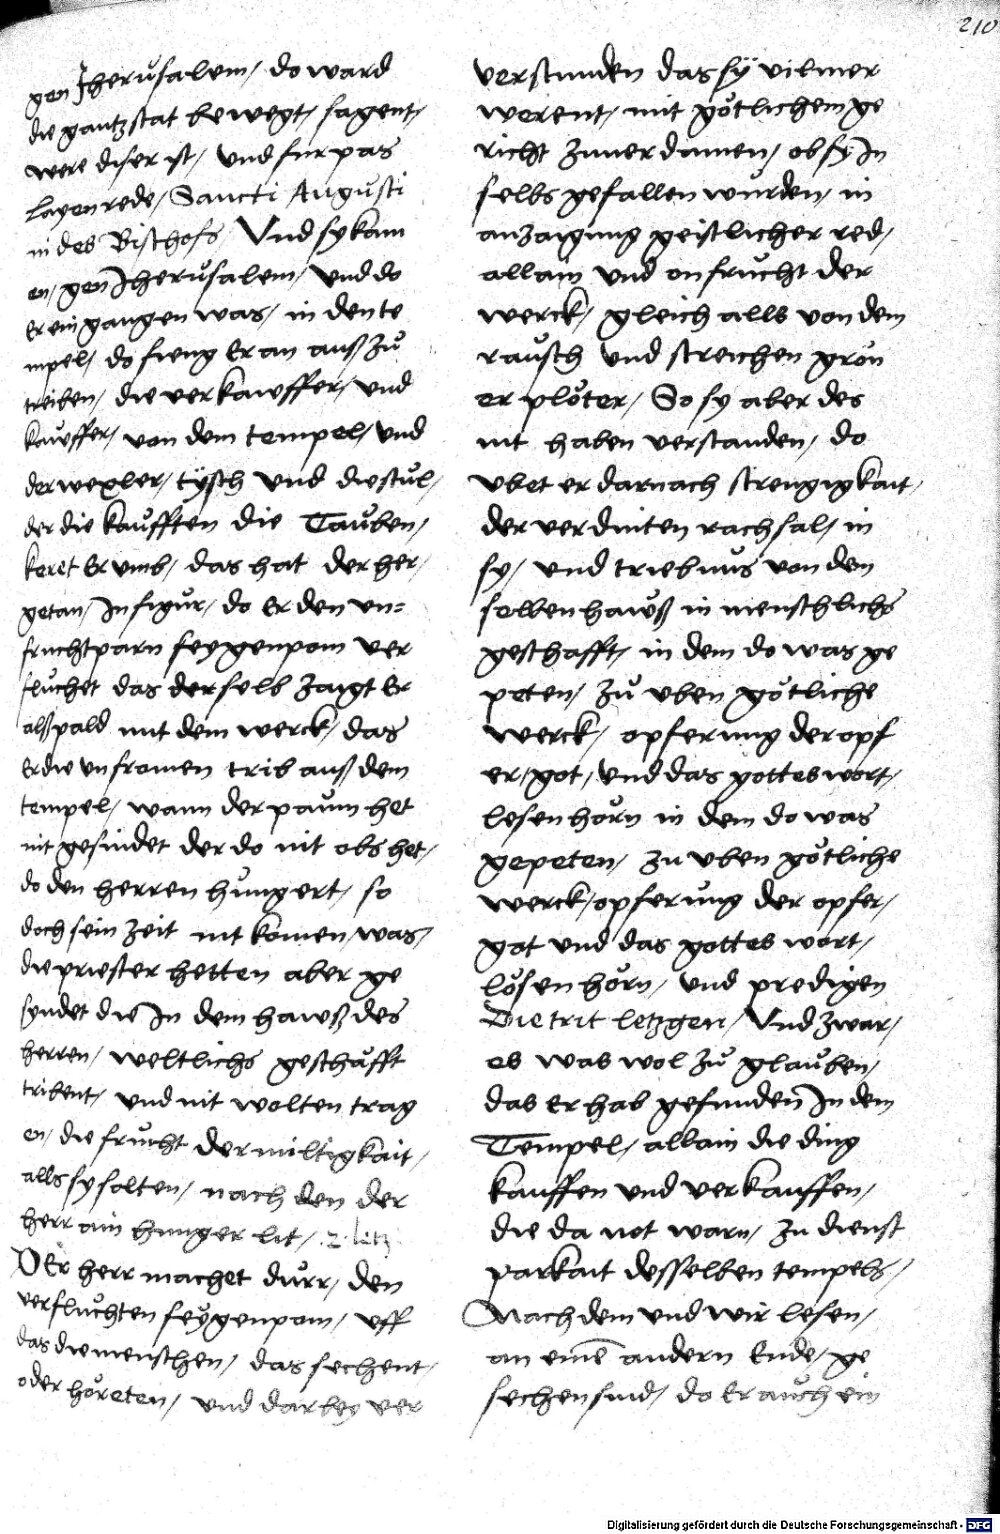 210
gen Jherusalem/ do ward
die gantz stat bewegt/ sagent/
were diser ist/ und fur pas
Layen rede/ Sancti Augusti
in des Bischofs Vnd sy kam
en/ gen Jherusalem/ und do
Er ein gangen was/ in den te
mpel/ do fieng Er an auß zů
treiben/ die verkawffer/ und
kawffer/ von dem tempel/ und
der wexler/ tÿsch und die stůl/
der die kaufften die Tauben/
keret Er umb/ das hat der her/
getan/ In figur/ do Er den vn=
fruchtparn feygenpom ver
fluchet das derselb zaigt Er
alßpald mit dem werck/ das
Er die vnfromen trib auß dem
tempel/ wann der paum het
nit gesundet der do nit obs het/
do den herren hungert/ so
doch sein zeit nit komen was/
die priester hetten aber ge
syndet die In dem hawß des
herren/ weltlichs geschäfft
tribent/ und nit wolten trag
en/ die frucht der miltigkait/
alls sy solten/ nach den der
herr ain hunger lit/ .2. letz
DEr herr machet durr/ den
verfluchten feygenpom/ uff
das die menschen/ das sechent/
oder höreten/ und darbey ver
verstunden das sÿ vilmer
werent/ mit götlichem ge
richt zuuerdamen/ ob sy In
selbs gefallen wurden/ in
anzaigung geistlicher red/
allain und on frucht der
werck/ gleich alls von dem
rausch und streichen grön
er plöter/ So sy aber des
nit haben verstanden/ do
vbet er darnach strengigkait/
der verdinten rachsal/ in
sy/ und trieb uus von dem
selben hawß in menschlichs
geschafft/ in dem do was ge
peten/ zů vben götliche
werck/ opferung der opf
er/ got/ und das gottes wort/
lesen hörn in dem do was
gepeten/ zu vben götliche
werck/ opferung der opfer/
got und das gottes wort/
lösen hörn/ und predigen
Die trit letzgen/ Und zwar/
es was wol zů glauben/
das Er hab gefunden In dem
Tempel/ allain die ding
kauffen und verkauffen/
die da not warn/ zu dienst
parkait desselben tempels/
Nach dem und wir lesen/
an eim̄e andern Ende/ ge
sechen sind/ do Er auch ein
Digitalisierung gefördert durch die Deutsche Forschungsgemeinschaft - DFG